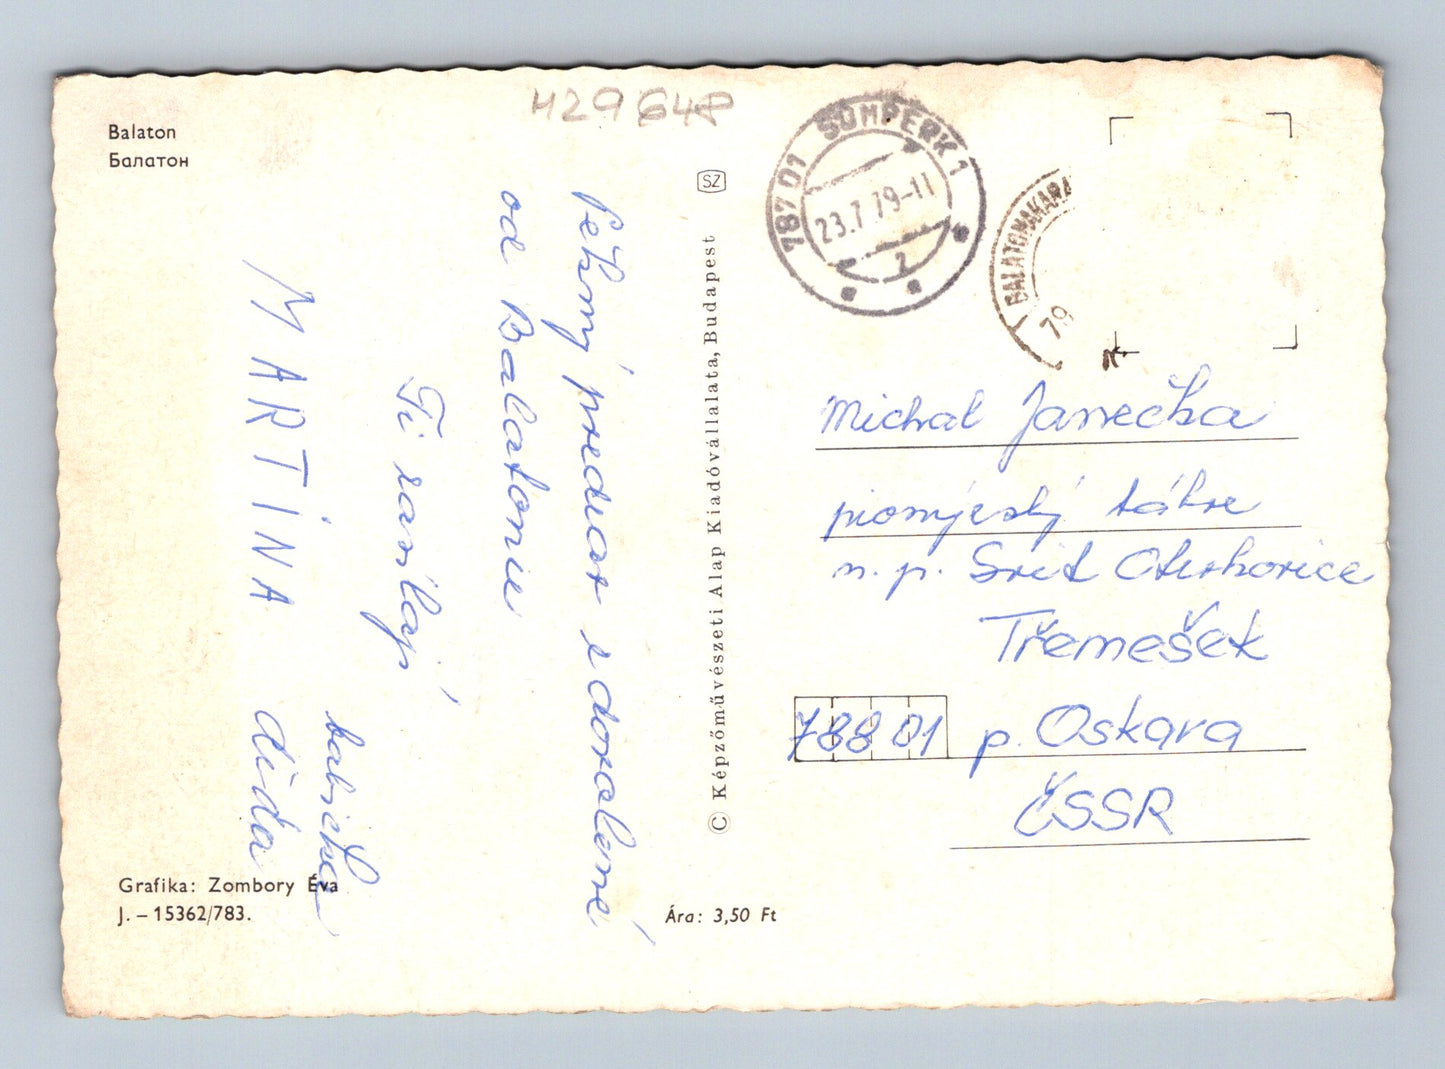 Balaton
Балатон
M29648
SZ
787 01 ŠUMPERK 1
23.7.79-11
z
BALATONAKARA
79
Pěkný pozdrav z dovolené
od Balatonu
Ti zasílají
babička
MARTINA děda
© Képzőművészeti Alap Kiadóvállalata, Budapest
Michal Janečka
pionýrský tábor
n.p. Svit Otrokovice
Třemešek
788 01 p. Oskava
ČSSR
Grafika: Zombory Éva
J. – 15362/783.
Ára: 3,50 Ft